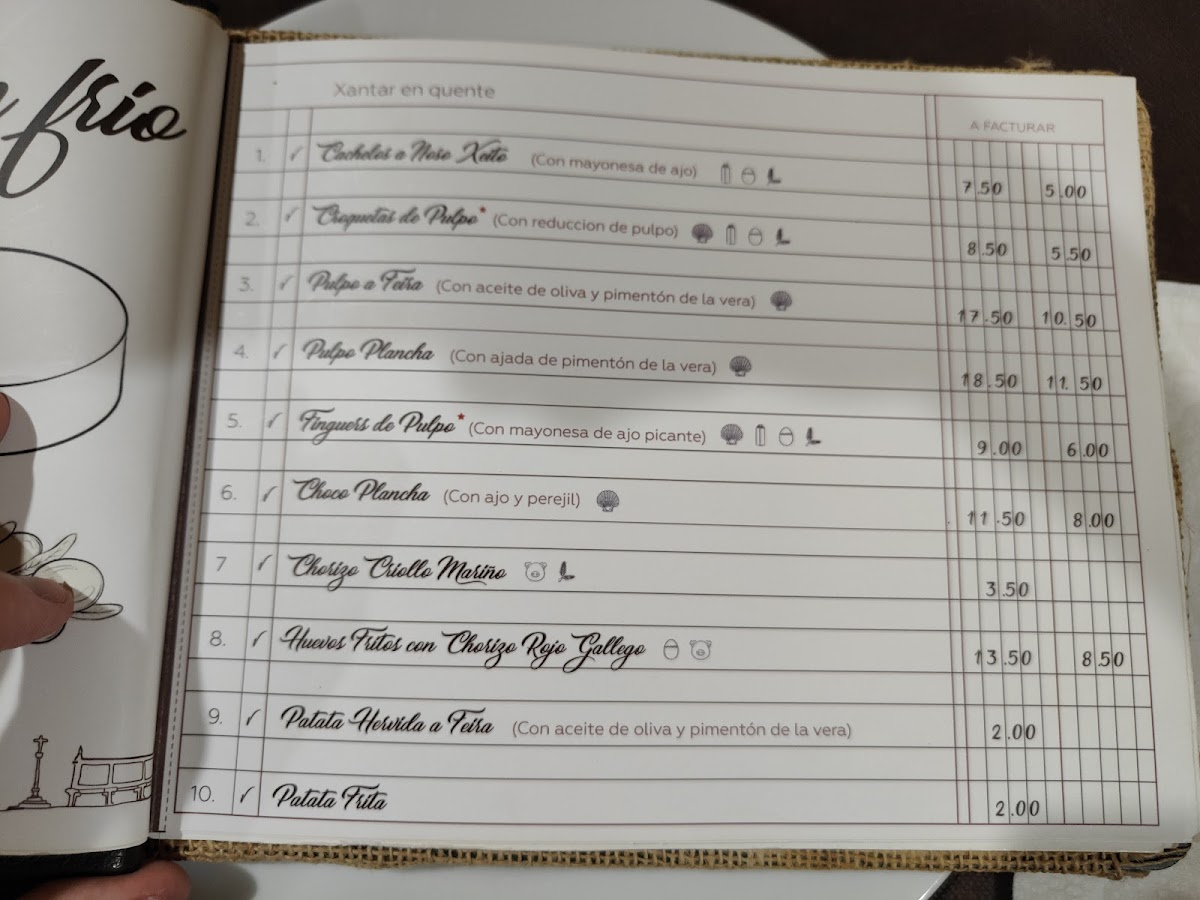 frío
Xantar en quente
A FACTURAR
1. Cachelos a Noso Xeito (Con mayonesa de ajo) 7.50 5.00
2. Croquetas de Pulpo* (Con reduccion de pulpo) 8.50 5.50
3. Pulpo a Feira (Con aceite de oliva y pimentón de la vera) 17.50 10.50
4. Pulpo Plancha (Con ajada de pimentón de la vera) 18.50 11.50
5. Finguers de Pulpo* (Con mayonesa de ajo picante) 9.00 6.00
6. Choco Plancha (Con ajo y perejil) 11.50 8.00
7 Chorizo Criollo Mariño 3.50
8. Huevos Fritos con Chorizo Rojo Gallego 13.50 8.50
9. Patata Hervida a Feira (Con aceite de oliva y pimentón de la vera) 2.00
10. Patata Frita 2.00